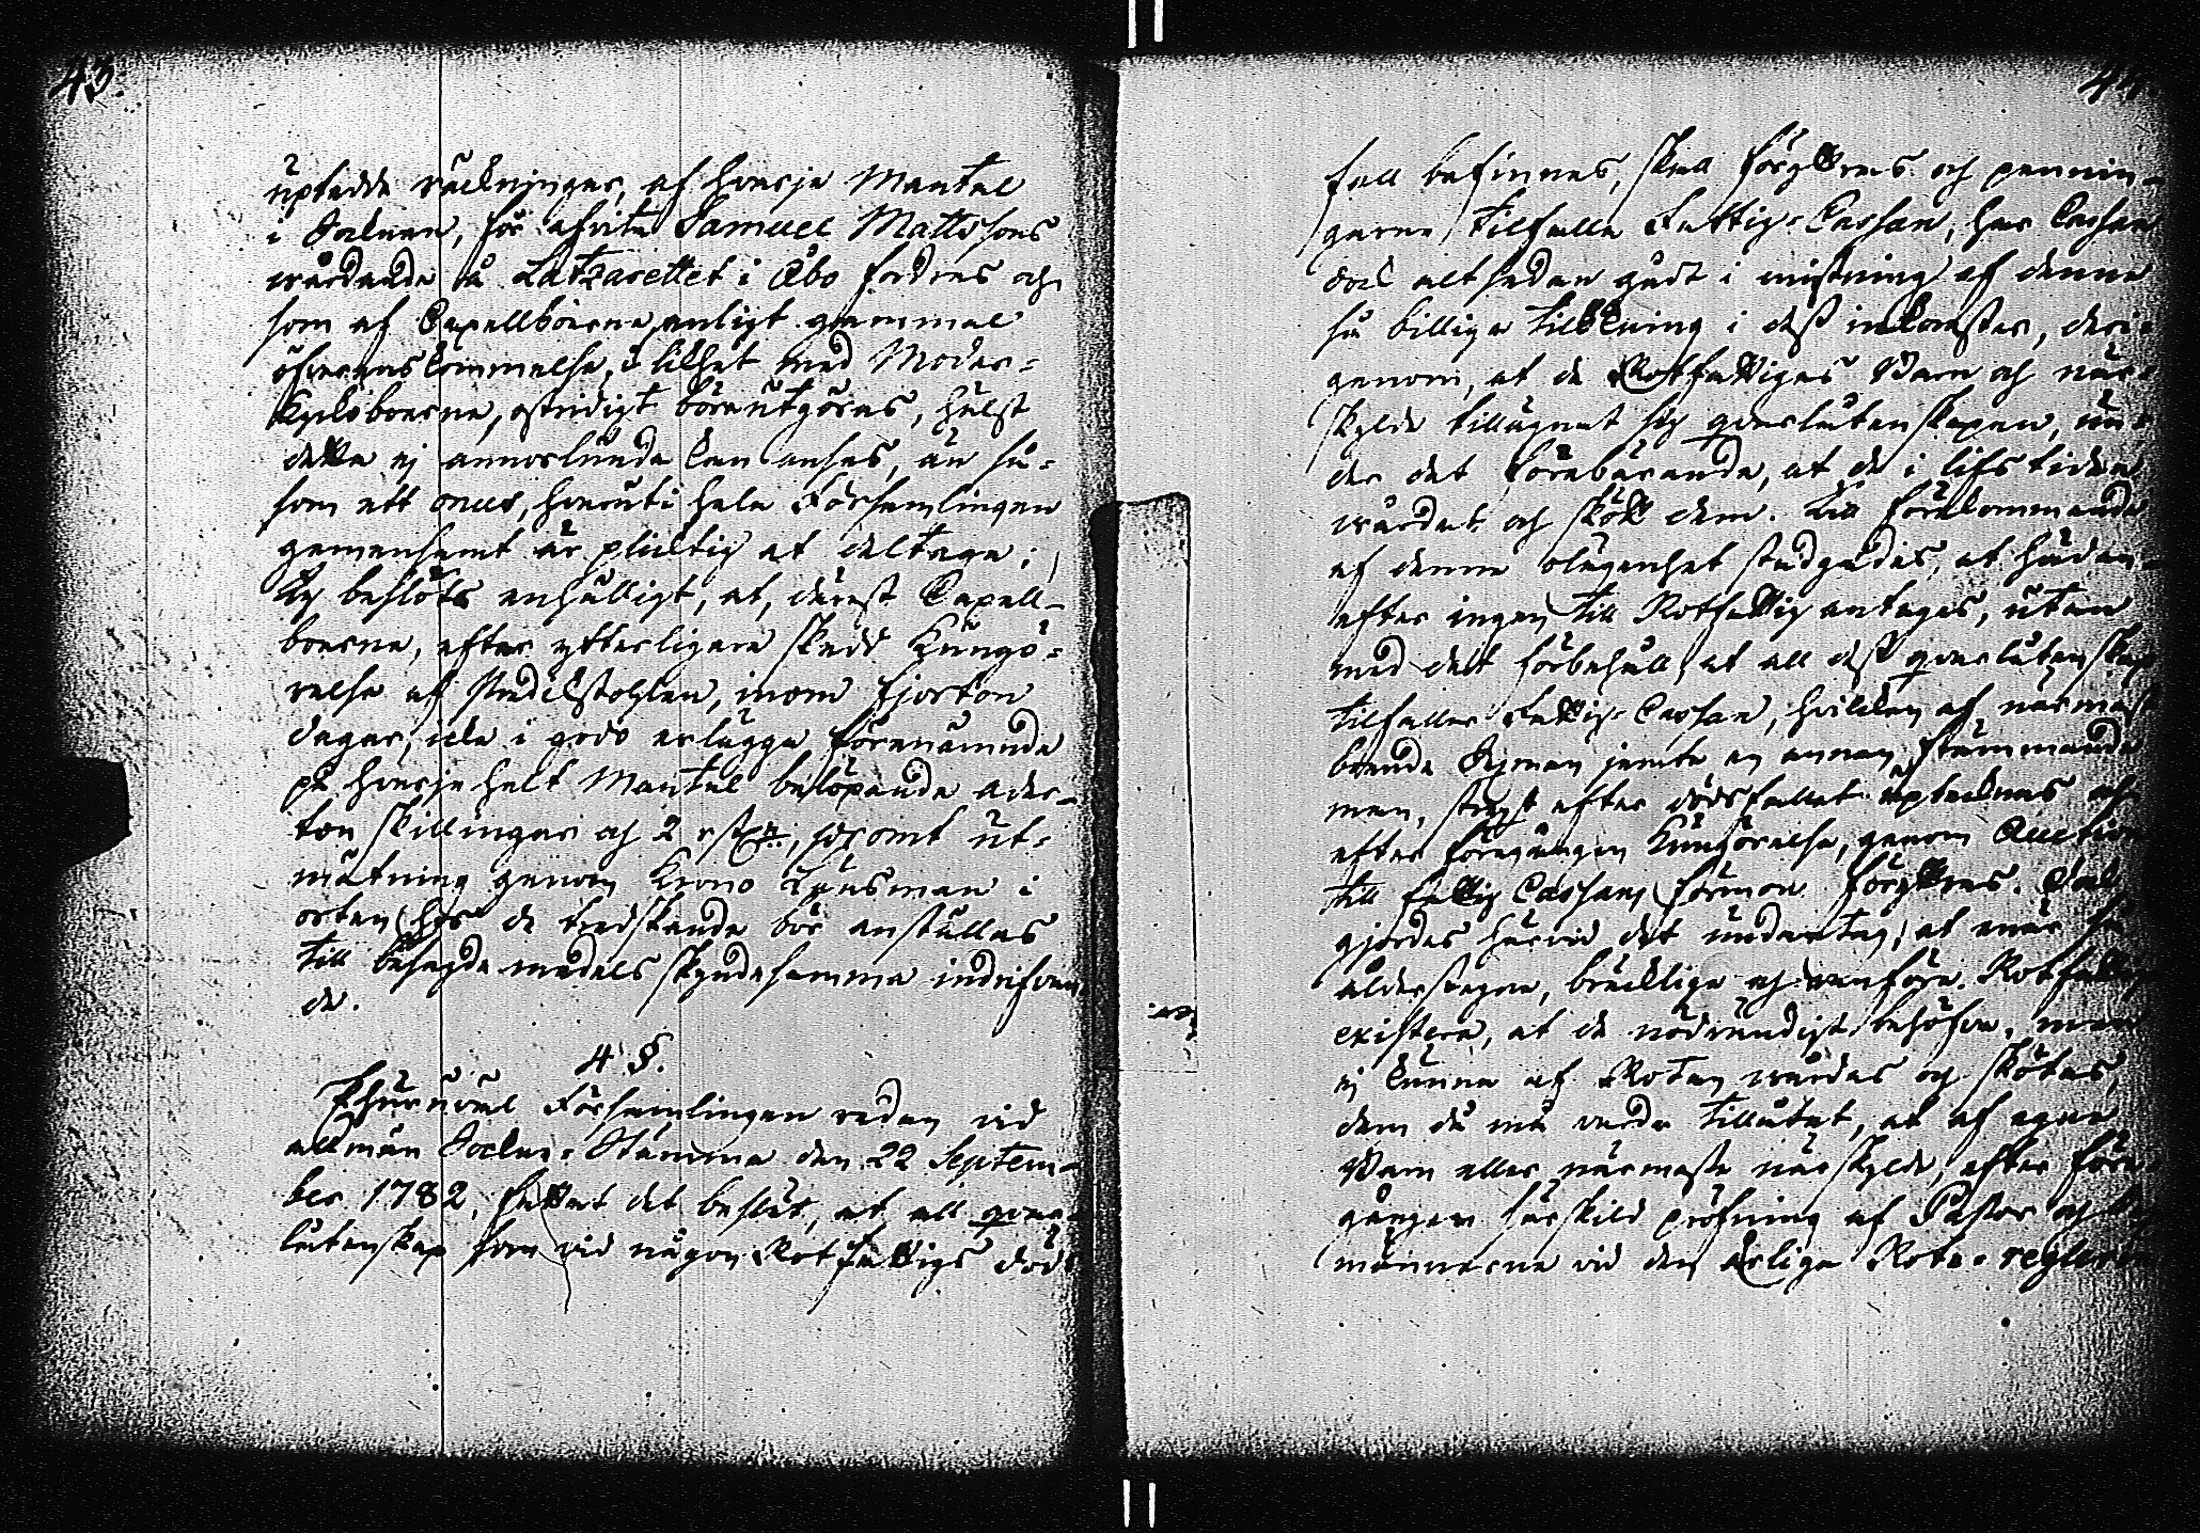 43.
uptedde räckningar, af hvarje Mantal
i Socknen, för afvita Samuel Mattssons
wårdande å Latzarettet i Åbo fordras och
som af Capellboerne, enligt gammal
öfverenskommelse, i likhet med Moder-
Kyrkoboerne, ostridigt böra utgöras, hälst
detta ej annorlunda kan anses, än så-
som ett onus, hvaruti hela Församlingen
gemensamt är pliktig at deltaga;
Ty beslöts enhälligt, at, därest Capell-
boerne, efter ytterligare skedd Kungö-
relse af Predikstohlen, inom fjorton
dagar, icke i godo erlägga förenämnde
på hvarje helt Mantal belöpande ader-
ton skillingar och 2 rst, sådant ut-
mätning genom Krono Länsman i
orten hos de tredskande bör anställas
till besagde medels skyndesamma indrifvan
de.
4 §.
Ehuruväl Församlingen redan vid
allmän Sockne-Stämma den 22 Septem-
ber 1782, fattat det beslut, at all qvar-
låtenskap som vid någon Rotfattigs döds
44.
fall befinnes, skall försyttras och pennin-
garne tilfalla Fattig-Cassan, har Cassan
dock altsedan gådt i mistning af denna
så billiga tillökning i dess inkomster, deri-
genom, at de Rotfattigas Barn och när-
skylde tillägnat sig qvarlåtenskapen, un-
der det förebärande, at de i lifstiden
wårdat och skött dem. Till förekommande
af denna olägenhet stadgades, at hädan-
efter ingen till Rotfattig antages, utan
med det förbehåll, at all dess qvarlåtenskap
tilfaller Fattig-Cassan, hvilken af närmast
boende Sexman jemte en annan
man, strax efter dödsfallet uptecknas och
efter föregången Kungörelse, genom Auction
till Fattig Cassans förmon försyttras. Dock
gjordes härvid det undantag, at när så
ålderstegne, bräcklige och vanföre Rotfattige
existera, at de nödvändigt behöfva, men
ej kunna af Rotan wårdas och skötas,
dem då må varda tillåtet, at af egna
Barn eller närmaste närskylde, efter före-
gången särskild pröfning af Pastor och
männerna vid den årliga Rote-regleringen